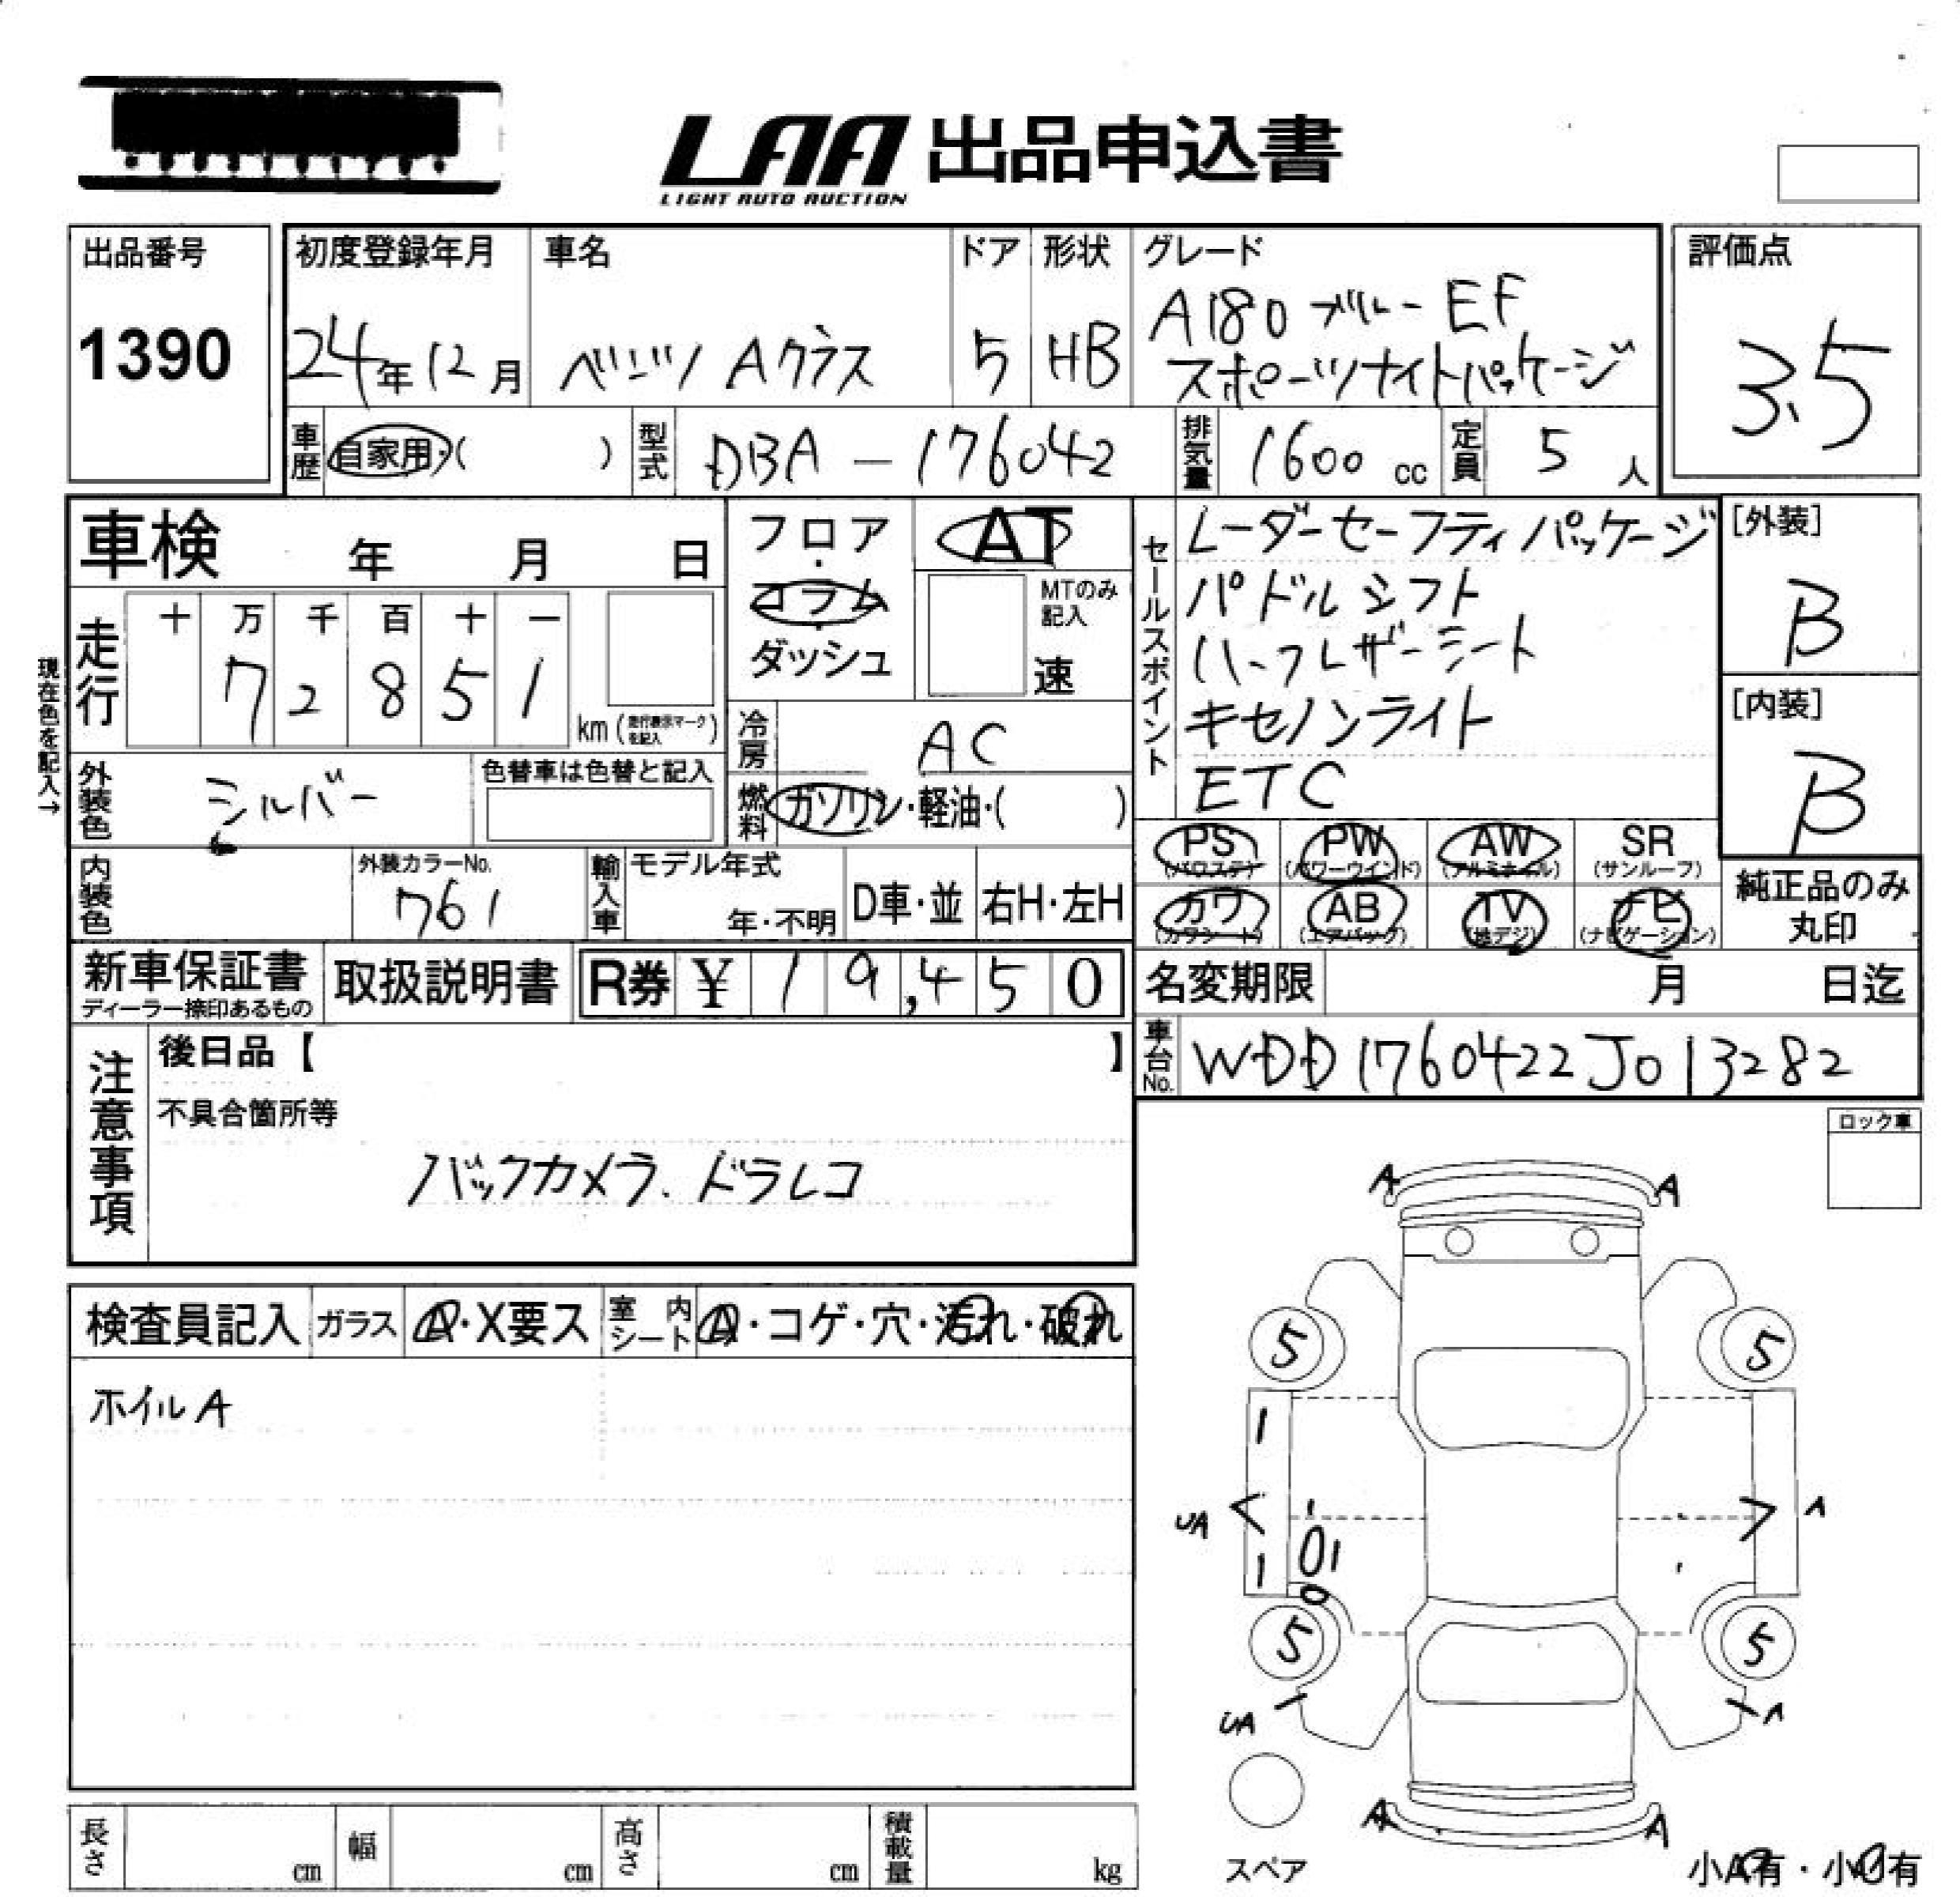 LAA 出品申込書
LIGHT AUTO AUCTION
出品番号
1390
初度登録年月
24年12月
車名
ベンツ Aクラス
ドア
5
形状
HB
グレード
A180 ブルーEF
スポーツナイトパッケージ
評価点
3.5
車歴 自家用・( )
型式 DBA-176042
排気量 1600 cc
定員 5 人
車検 年 月 日
現在色を記入→
走行
十 万 千 百 十 一
7 2 8 5 1
km (走行表示マークを記入)
フロア
・
コラム
・
ダッシュ
AT
MTのみ記入
速
冷房 AC
燃料 ガソリン・軽油・( )
セールスポイント
レーダーセーフティパッケージ
パドルシフト
ハーフレザーシート
キセノンライト
ETC
[外装]
B
[内装]
B
外装色 シルバー
色替車は色替と記入
内装色
外装カラーNo.
761
輸入車
モデル年式
年・不明
D車・並
右H・左H
PS (パワステ)
PW (パワーウインド)
AW (アルミホイル)
SR (サンルーフ)
カワ (カワシート)
AB (エアバッグ)
TV (地デジ)
ナビ (ナビゲーション)
純正品のみ
丸印
新車保証書
ディーラー捺印あるもの
取扱説明書
R券 ¥ 19,450
名変期限 月 日迄
車台No. WDD1760422J013282
注意事項
後日品【 】
不具合箇所等
バックカメラ、ドラレコ
ロック車
検査員記入
ガラス A・X要ス
室内シート A・コゲ・穴・汚れ・破れ
ホイルA
A A
5 5
1
UA < > A
1
5 5
UA A
A A
スペア
小A有・小U有
長さ cm
幅 cm
高さ cm
積載量 kg